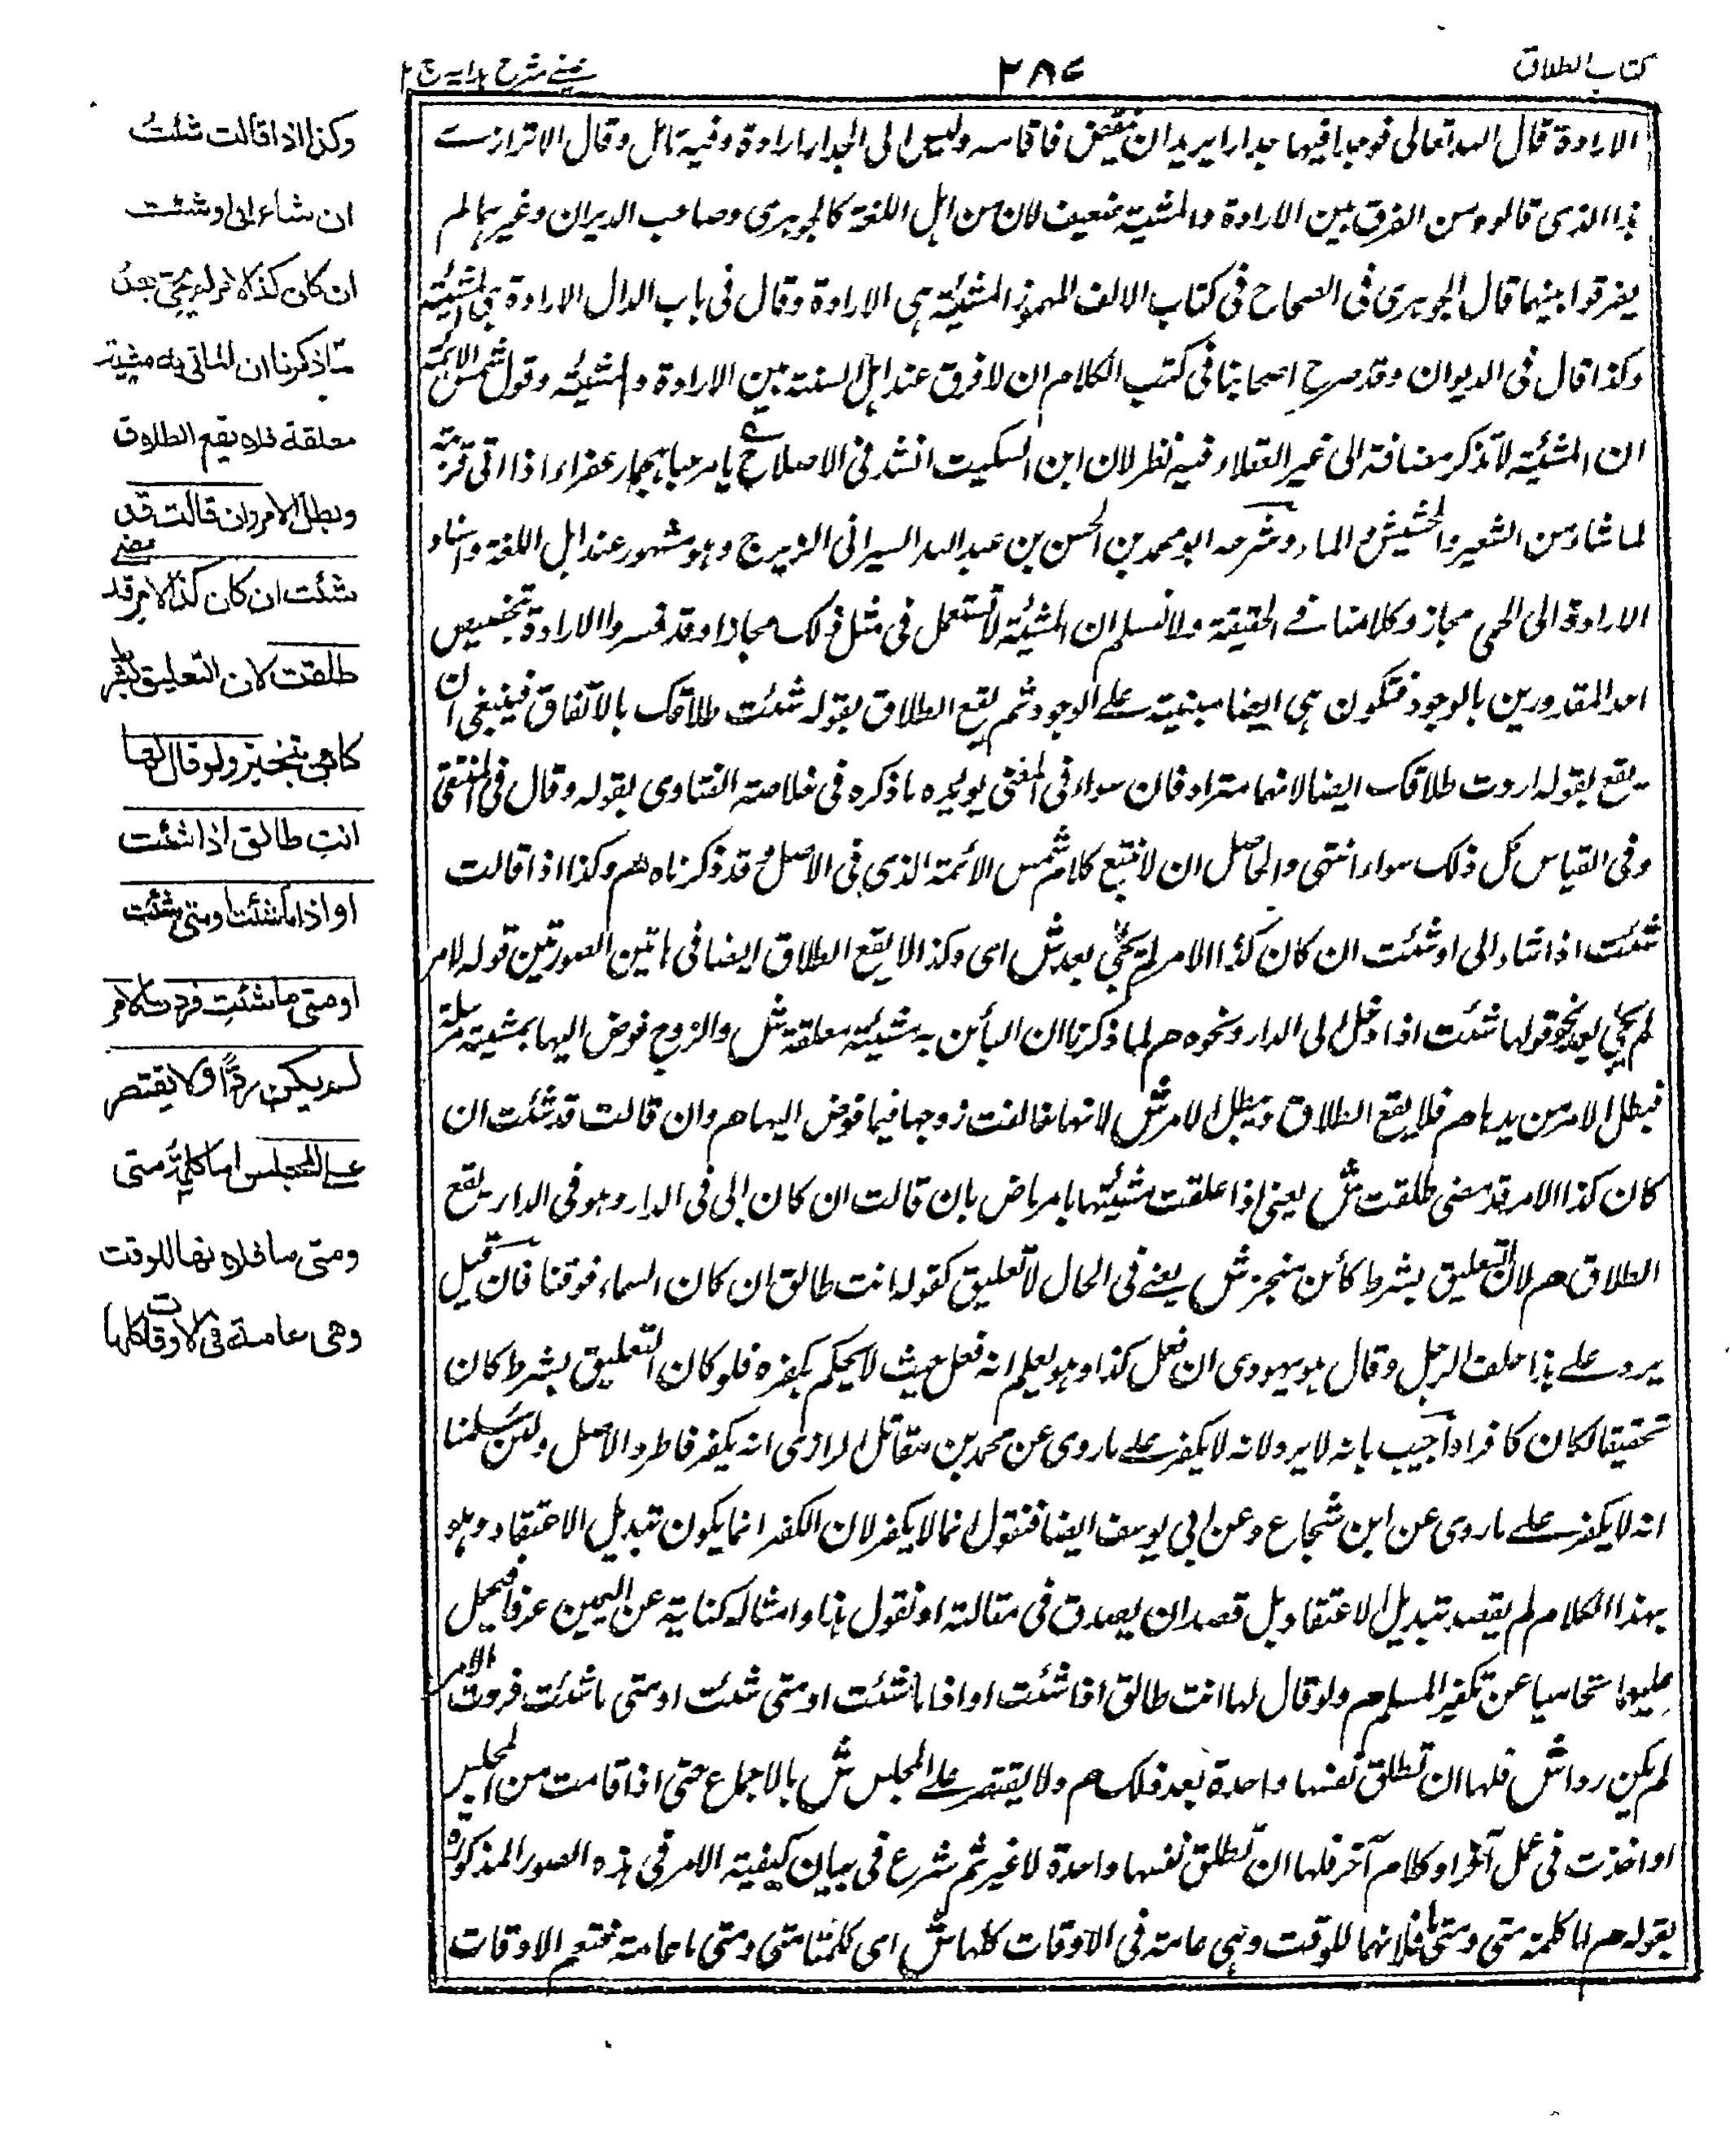 كتاب الطلاق
٢٨٤
عينى شرح هداية ج ٢
الارادة قال الله تعالى فوجدا فيها جدارا يريد ان ينقض فاقامه وليس الى الجدار ارادة وفيه تامل وقال الاترازى
هذا الذى قالوه من الفرق بين الارادة والمشية ضعيف لان من اهل اللغة كالجوهرى وصاحب الديوان وغيرهما لم
يفرقوا بينهما قال الجوهرى فى الصحاح فى كتاب الالف المهموز المشيئة هى الارادة وقال فى باب الدال الارادة هى المشيئة
وكذا قال فى الديوان وقد صرح اصحابنا فى كتب الكلام ان لا فرق عند اهل السنة بين الارادة والمشيئة وقول شمس الائمة
ان المشيئة لا تذكر مضافة الى غير العقلاء فيه نظر لان ابن السكيت انشد فى الاصلاح ع يا مرحبا بحمار عفراء اذا اتى قربته
لما شاء من الشعير والحشيش والماء وشرحه ابو محمد بن الحسن بن عبد الله السيرافى الزبرج وهو مشهور عند اهل اللغة واسناد
الارادة الى الحى مجاز وكلامنا فى الحقيقة ولا نسلم ان المشيئة لا تستعمل فى مثل ذلك مجازا وقد فسروا الارادة بتخصيص
احد المقدورين بالوجود فتكون هى ايضا مبنية على الوجود ثم يقع الطلاق بقوله شئت طلاقك بالاتفاق فينبغى ان
يقع بقوله اردت طلاقك ايضا لانهما مترادفان سواء فى المغنى يويده ما ذكره فى خلاصة الفتاوى بقوله وقال فى المنتقى
وفى القياس كل ذلك سواء انتهى والحاصل ان لا نتبع كلام شمس الائمة الذى فى الاصل وقد ذكرناه هم وكذا اذا قالت
شئت اذا شاء ابى او شئت ان كان كذا الامر لم يجئ بعد ش اى وكذا لا يقع الطلاق ايضا فى هاتين الصورتين قوله لامر
لم يجئ بعد نحو قولها شئت اذا دخل ابى الدار ونحوه هم لما ذكرنا ان الماتى به مشيئة معلقة ش والزوج فوض اليها بمشيئة مرسلة
فبطل الامر من يدها هم فلا يقع الطلاق وبطل الامر ش لانها خالفت زوجها فيما فوض اليها هم وان قالت قد شئت ان
كان كذا الامر قد مضى طلقت ش يعنى اذا علقت مشيئتها بامر ماض بان قالت ان كان ابى فى الدار وهو فى الدار يقع
الطلاق هم لان التعليق بشرط كائن منجز ش يعنى فى الحال لا تعليق كقوله انت طالق ان كان السماء فوقنا فان قيل
يرد على هذا حلف الرجل وقال هو يهودى ان فعل كذا وهو يعلم انه فعل حيث لا يحكم بكفره فلو كان التعليق بشرط كان
تحقيقا لكان كافرا اجيب بانه لا يرد لانه لا يكفر على ما روى عن محمد بن مقاتل الرازى انه يكفر فاطرد الاصل ولئن سلمنا
انه لا يكفر على ما روى عن ابن شجاع وعن ابى يوسف ايضا فنقول انما لا يكفر لان الكفر انما يكون تبديل الاعتقاد وهو
بهذا الكلام لم يقصد تبديل الاعتقاد بل قصد ان يصدق فى مقالته او نقول هذا وامثاله كناية عن اليمين عرفا فيحمل
عليها تحاميا عن تكفير المسلم هم ولو قال لها انت طالق اذا شئت او اذا ما شئت او متى شئت او متى ما شئت فردت الامر
لم يكن ردا ش فلها ان تطلق نفسها واحدة بعد ذلك هم ولا يقتصر على المجلس ش بالاجماع حتى اذا قامت من المجلس
او اخذت فى عمل آخر او كلام آخر فلها ان تطلق نفسها واحدة لا غير ثم شرع فى بيان كيفية الامر فى هذه الصور المذكورة
بقوله هم اما كلمة متى ومتى ما فلانهما للوقت وهى عامة فى الاوقات كلها ش اى كلمتا متى ومتى ما عامة فتعم الاوقات
وكذا اذا قالت شئت
ان شاء ابى او شئت
ان كان كذا لامر لم يجئ بعد
لما ذكرنا ان الماتى به مشيئة
معلقة فلا يقع الطلاق
وبطل الامر وان قالت قد
شئت ان كان كذا لامر قد مضى
طلقت لان التعليق بشرط
كائن تنجيز ولو قال لها
انت طالق اذا شئت
او اذا ما شئت او متى شئت
او متى ما شئت فردت الامر
لم يكن ردًّا ولا يقتصر
على المجلس اما كلمة متى
ومتى ما فلانهما للوقت
وهى عامة فى الاوقات كلها